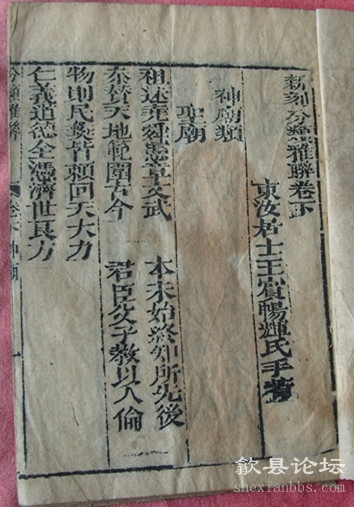 新刻分類雅聯卷下
東汝居士王賓暢輝氏手著
神廟類
聖廟
祖述堯舜憲章文武 本末始終知所先後
叅贊天地範圍古今 君臣父子教以人倫
物則民彝皆頼回天大力
仁義道德全憑濟世良方
分類雅聯 卷下神廟 一
歙县论坛
shexianbbs.com